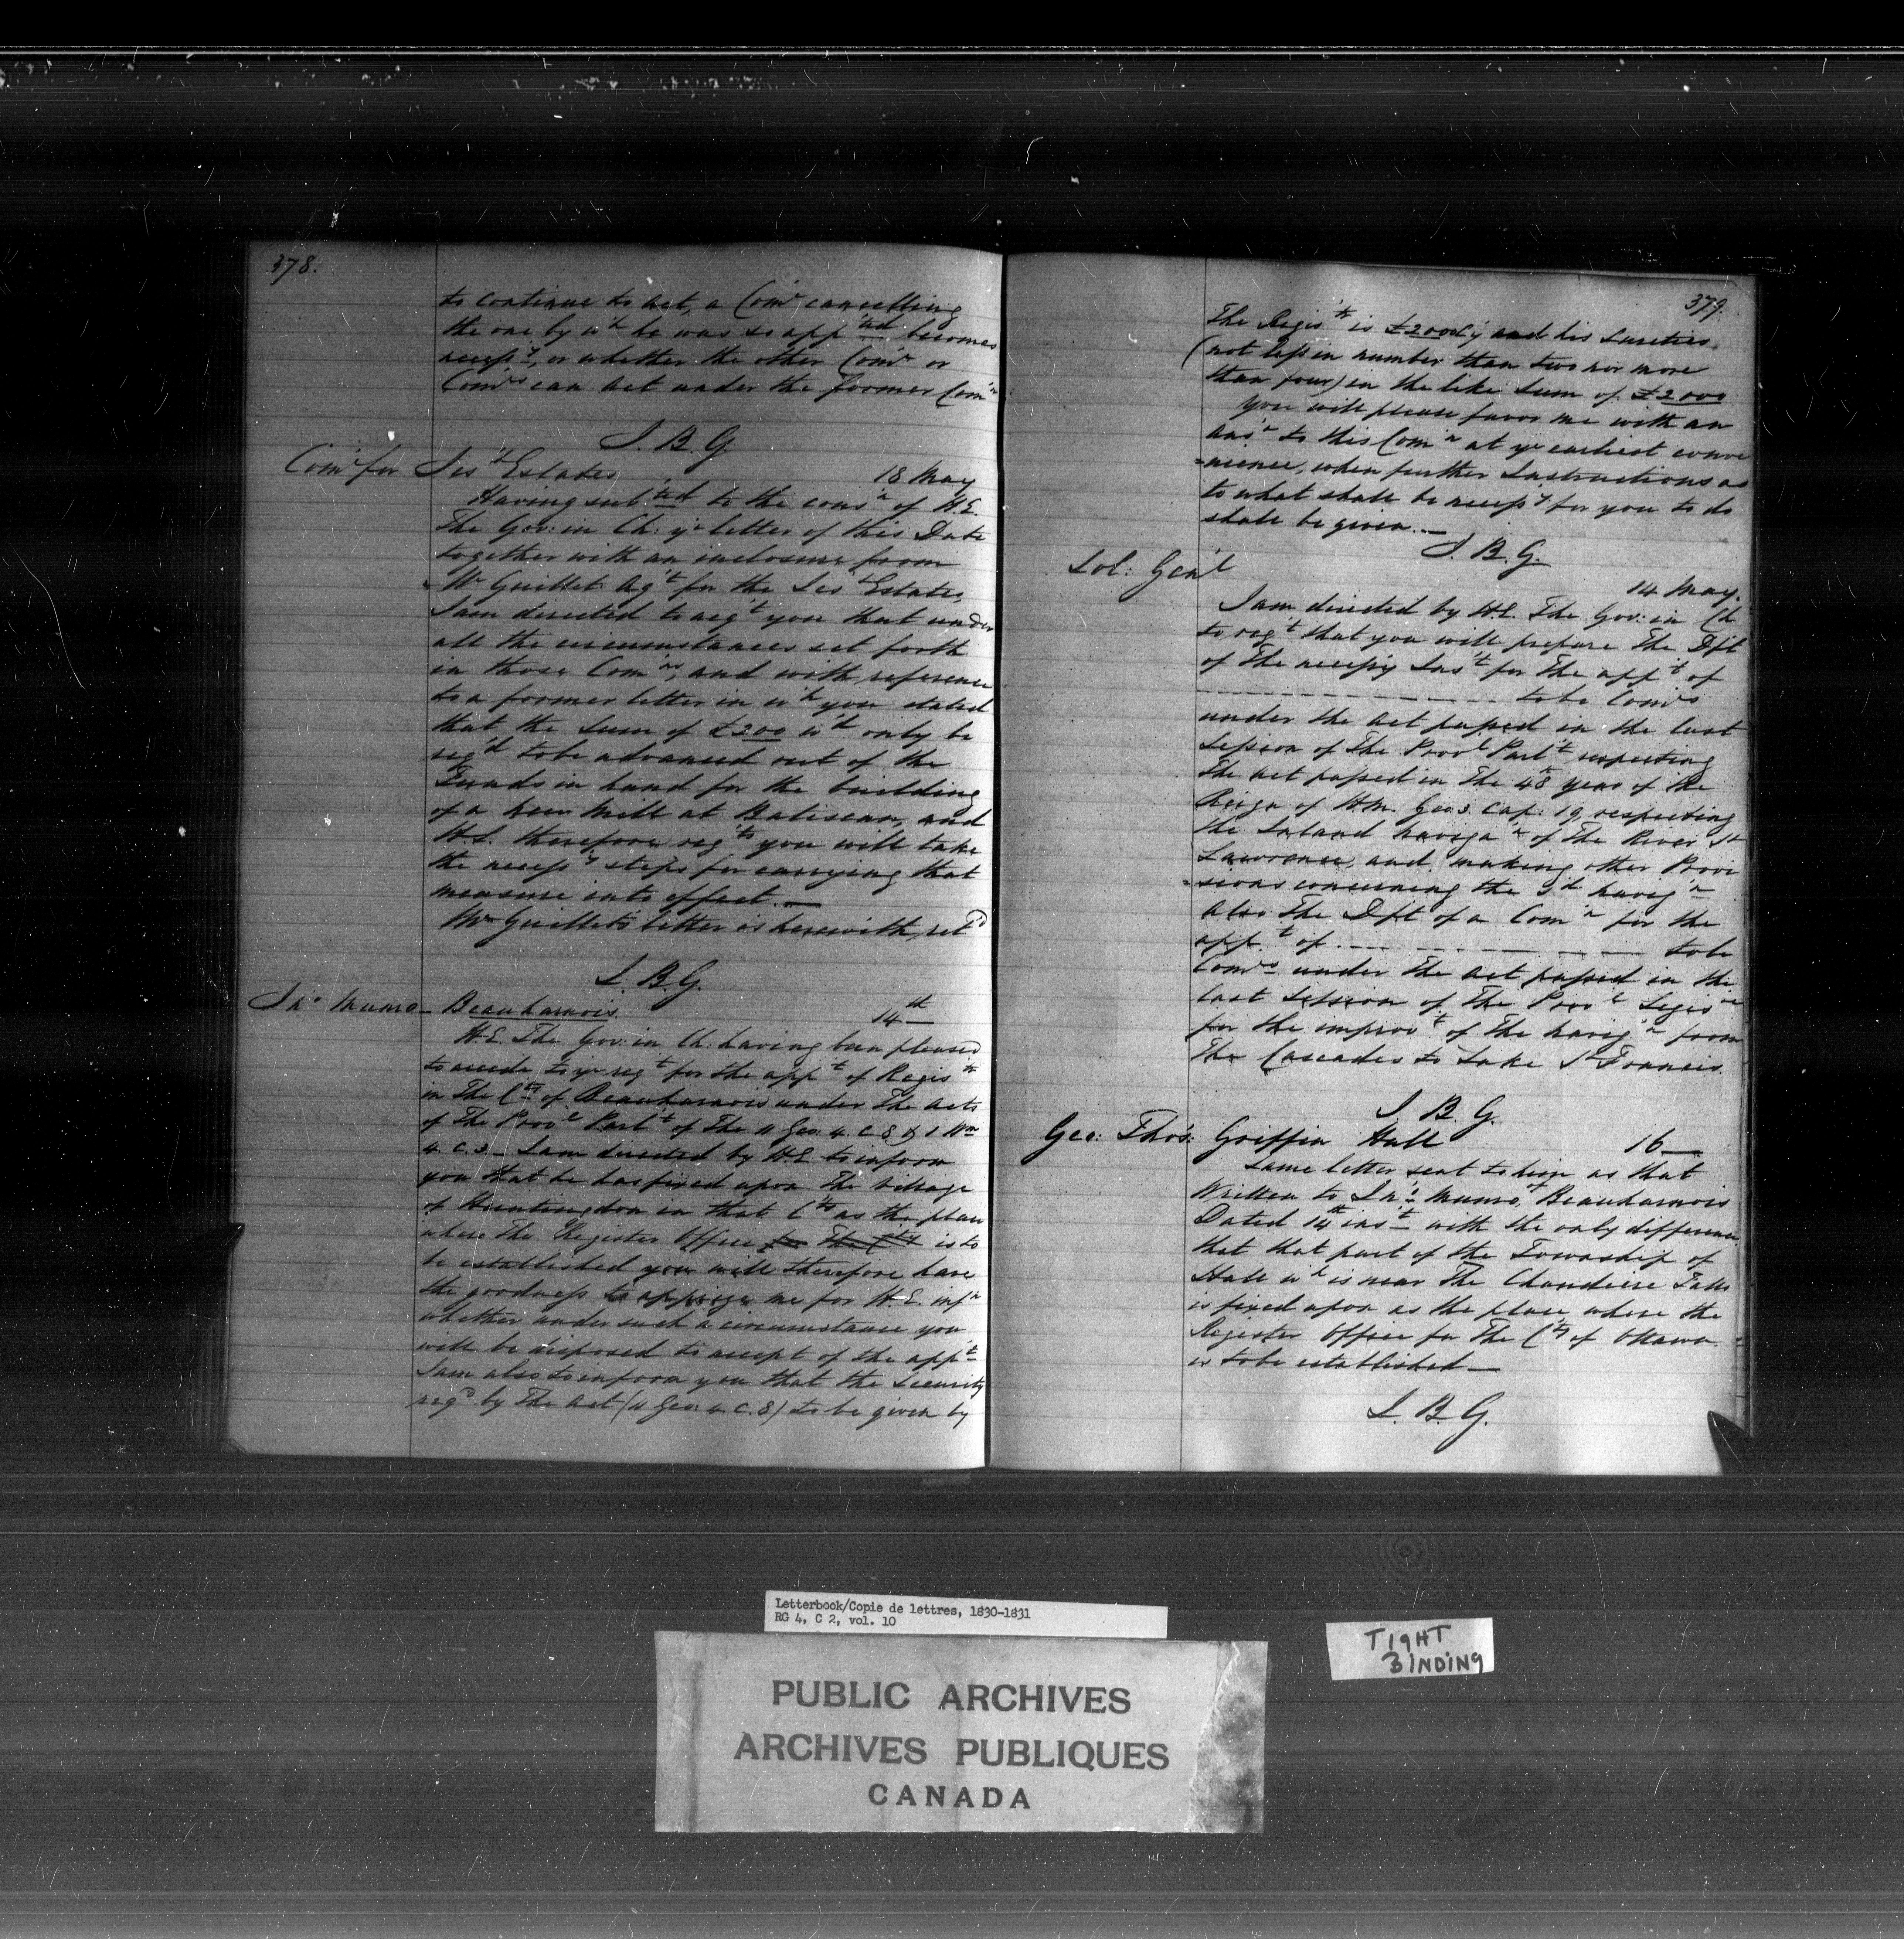 378.
to continue to act, a Com^r cancelling
the one by w^h he was so app^ted becomes
necess^y, or whether the other Com^r or
Com^rs can act under the former Com^n
J. B. G.
Com^r for Jes^ts Estates 18 May
Having sub^ted to the cons^n of H.E.
The Gov: in Ch: y^r letter of this Date
together with an inclosure from
M^r Guillet Ag^t for the Jes^ts Estates,
I am directed to req^t you that under
all the circumstances set forth
in those Com^ns, and with reference
to a former letter in w^h you stated
that the Sum of £200 w^d only be
req^d to be advanced out of the
Funds in hand for the building
of a new Mill at Batiscan, and
H.E. therefore req^ts you will take
the necess^y steps for carrying that
measure into effect.—
M^r Guillet's letter is herewith ret^d
J. B. G.
Jn^o Munro— Beauharnois. 14^th
H.E. The Gov: in Ch: having been pleased
to accede to y^r req^t for the app^t of Regis^tr
in The C^ty of Beauharnois under The Acts
of The Prov^l Parl^t of The 11 Geo: 4. C 8 & 1 W^m
4. C. 3— I am directed by H.E. to inform
you that he has fixed upon The Village
of Huntingdon in that C^ty as the place
where The Register Office for The C^ty is to
be established you will therefore have
the goodness to apprize me for H.E. inf^n
whether under such a circumstance you
will be disposed to accept of the app^t
I am also to inform you that the Security
req^d by The Act (11 Geo. 4. C. 8) to be given by
379.
The Regis^tr is £2000 C^y and his Sureties
(not less in number than two nor more
than four) in the like Sum of £2000
You will please favor me with an
Ans^r to this Com^n at y^r earliest conve
=nience, when further Instructions as
to what shall be necess^y for you to do
shall be given.—
J. B. G.
Sol: Gen^l
14 May.
I am directed by H.E. The Gov: in Ch
to req^t that you will prepare The Dft
of The necess^y Ins^t for The app^t of
to be Com^rs
under the Act passed in the last
Session of The Prov^l Parl^t respecting
The Act passed in The 48^th year of the
Reign of H.M. Geo: 3. Cap: 19, respecting
the Inland Naviga^n of The River St
Lawrence, and making other Provi
=sions concerning the s^d Navig^n
Also The Dft of a Com^n for the
app^t of to be
Com^rs under The Act passed in the
last Session of The Prov^l Legis^re
for the improv^t of The Navig^n from
The Cascades to Lake St Francis.
J. B. G.
Geo: Tho^s: Griffin Hull 16—
Same letter sent to him as that
Written to Jn^o: Munro, Beauharnois
Dated 14^th ins^t with the only difference
that that part of the Township of
Hull w^h is near The Chaudiere Falls
is fixed upon as the place where the
Register Office for The C^ty of Ottawa
is to be established—
J. B. G.
Letterbook/Copie de lettres, 1830-1831
RG 4, C 2, vol. 10
TIGHT
BINDING
PUBLIC ARCHIVES
ARCHIVES PUBLIQUES
CANADA